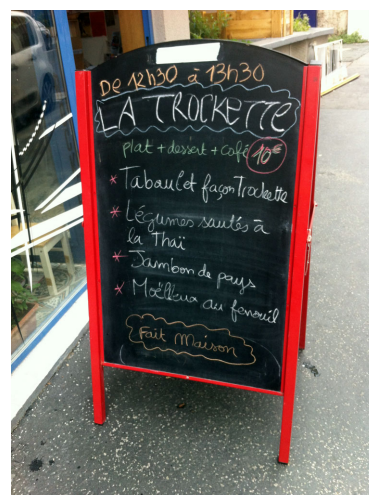 De 12h30 à 13h30
LA TROCKETTE
plat + dessert + café 10€
* Taboulet façon Trockette
* Légumes sautés à
la Thaï
* Jambon de pays
* Moëlleux au fenouil
Fait Maison